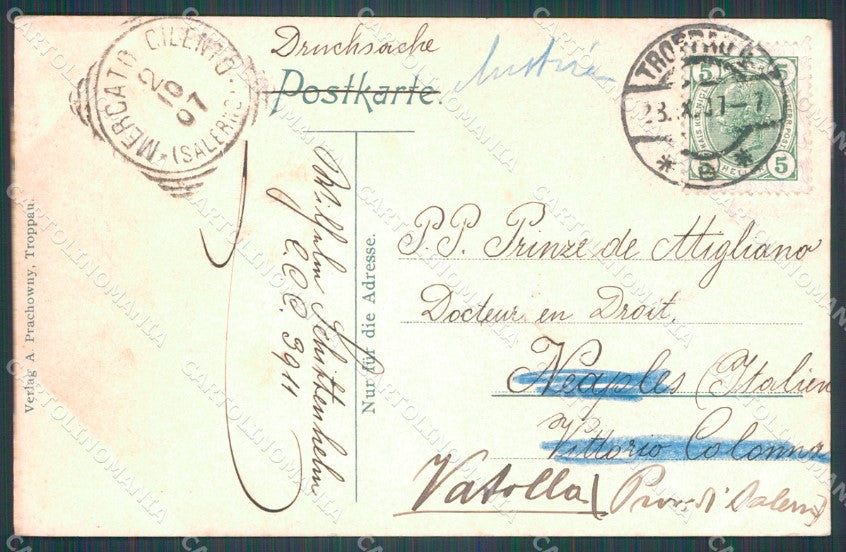 MERCATO CILENTO
2 10 07
* (SALERNO)
Drucksache
Postkarte.
Austria
TROPPAU
23.X.07-7
* e *
5 5
5
P.P. Prinze de Migliano
Docteur en Droit.
Neaples (Italien
Vittorio Colonna
Vatolla (Prov. d'Salerno)
Wilhelm Schittenhelm
C.C.C. 3911
Nur für die Adresse.
Verlag A. Prachowny, Troppau.
CARTOLINOMANIA